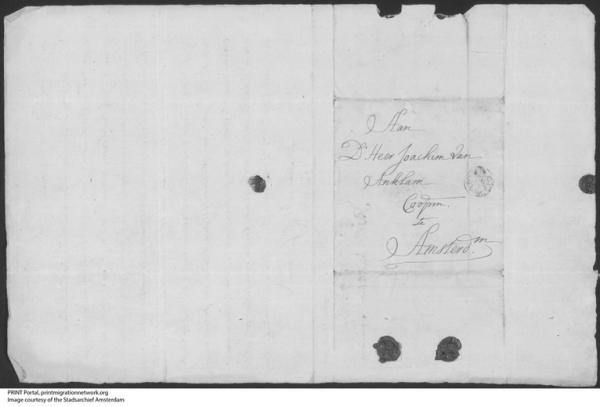 Aan
D'Heer Joachim van
Anklam
Coopm.
te
Amsterd.m
PRINT Portal, printmigrationnetwork.org
Image courtesy of the Stadsarchief Amsterdam